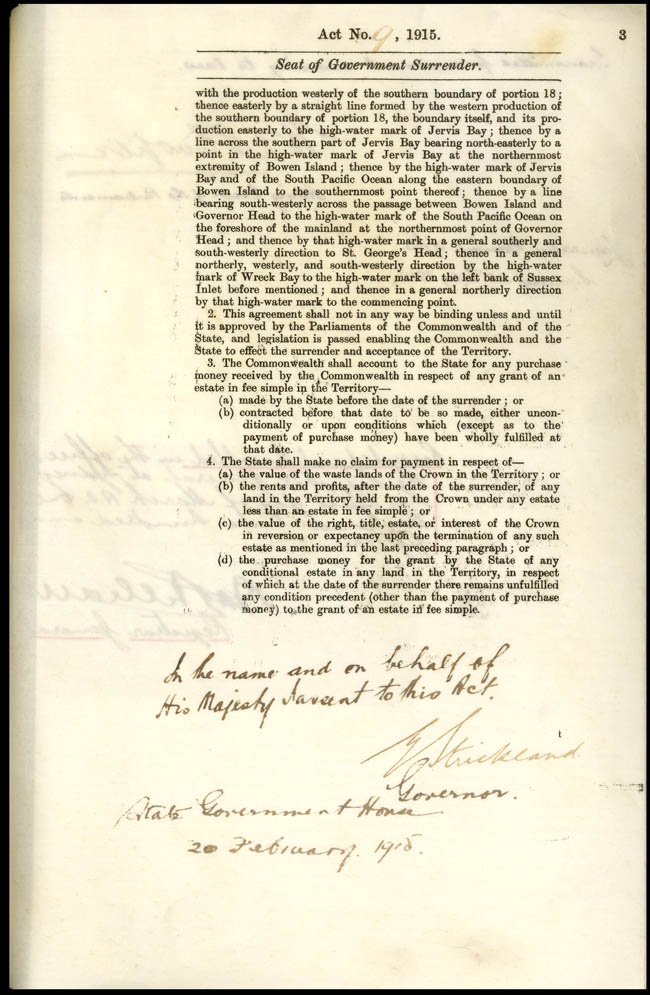 Act No. 9, 1915.
3
Seat of Government Surrender.
with the production westerly of the southern boundary of portion 18;
thence easterly by a straight line formed by the western production of
the southern boundary of portion 18, the boundary itself, and its pro-
duction easterly to the high-water mark of Jervis Bay; thence by a
line across the southern part of Jervis Bay bearing north-easterly to a
point in the high-water mark of Jervis Bay at the northernmost
extremity of Bowen Island; thence by the high-water mark of Jervis
Bay and of the South Pacific Ocean along the eastern boundary of
Bowen Island to the southernmost point thereof; thence by a line
bearing south-westerly across the passage between Bowen Island and
Governor Head to the high-water mark of the South Pacific Ocean on
the foreshore of the mainland at the northernmost point of Governor
Head; and thence by that high-water mark in a general southerly and
south-westerly direction to St. George's Head; thence in a general
northerly, westerly, and south-westerly direction by the high-water
mark of Wreck Bay to the high-water mark on the left bank of Sussex
Inlet before mentioned; and thence in a general northerly direction
by that high-water mark to the commencing point.
2. This agreement shall not in any way be binding unless and until
it is approved by the Parliaments of the Commonwealth and of the
State, and legislation is passed enabling the Commonwealth and the
State to effect the surrender and acceptance of the Territory.
3. The Commonwealth shall account to the State for any purchase
money received by the Commonwealth in respect of any grant of an
estate in fee simple in the Territory—
(a) made by the State before the date of the surrender; or
(b) contracted before that date to be so made, either uncon-
ditionally or upon conditions which (except as to the
payment of purchase money) have been wholly fulfilled at
that date.
4. The State shall make no claim for payment in respect of—
(a) the value of the waste lands of the Crown in the Territory; or
(b) the rents and profits, after the date of the surrender, of any
land in the Territory held from the Crown under any estate
less than an estate in fee simple; or
(c) the value of the right, title, estate, or interest of the Crown
in reversion or expectancy upon the termination of any such
estate as mentioned in the last preceding paragraph; or
(d) the purchase money for the grant by the State of any
conditional estate in any land in the Territory, in respect
of which at the date of the surrender there remains unfulfilled
any condition precedent (other than the payment of purchase
money) to the grant of an estate in fee simple.
In the name and on behalf of
His Majesty I assent to this Act.
G Strickland
Governor.
State Government House
20 February. 1915.